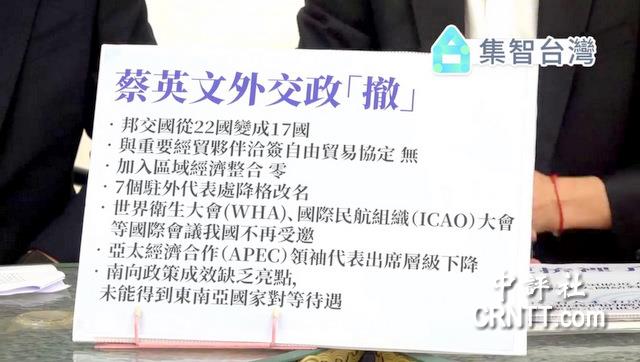 集智台灣
蔡英文外交政「撤」
·邦交國從22國變成17國
·與重要經貿夥伴洽簽自由貿易協定 無
·加入區域經濟整合 零
·7個駐外代表處降格改名
·世界衛生大會(WHA)、國際民航組織(ICAO)大會
等國際會議我國不再受邀
·亞太經濟合作(APEC)領袖代表出席層級下降
·南向政策成效缺乏亮點,
未能得到東南亞國家對等待遇
中評社
CRNTT.com